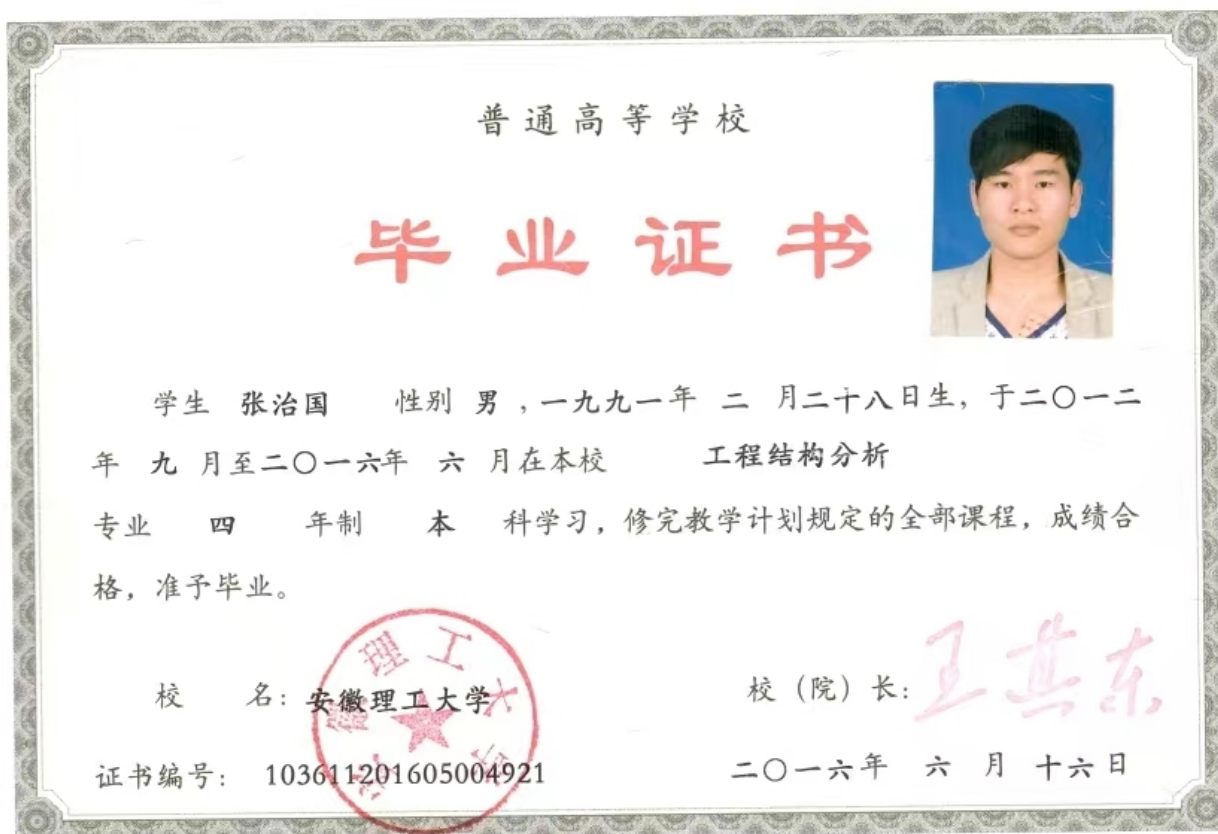 普通高等学校
毕业证书
学生 张治国 性别 男 ,一九九一年 二 月二十八日生, 于二〇一二
年 九 月至二〇一六年 六 月在本校 工程结构分析
专业 四 年制 本 科学习, 修完教学计划规定的全部课程, 成绩合
格, 准予毕业。
安徽理工大学
校 名: 安徽理工大学
校（院）长: 王其东
证书编号: 103611201605004921
二〇一六年 六 月 十六日